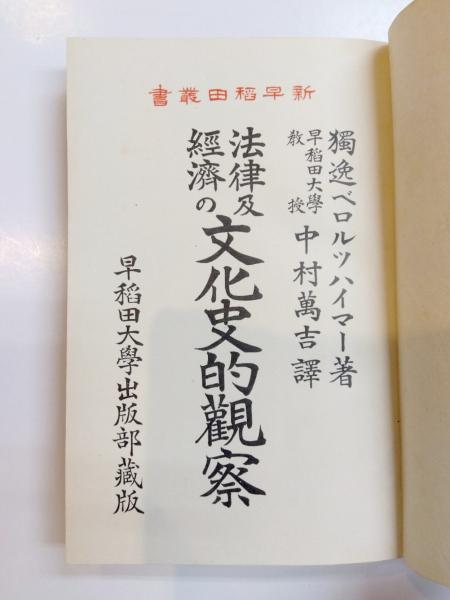 新早稻田叢書
獨逸ベロルツハイマー著
早稻田大學教授 中村萬吉譯
法律及經濟の文化史的觀察
早稻田大學出版部藏版